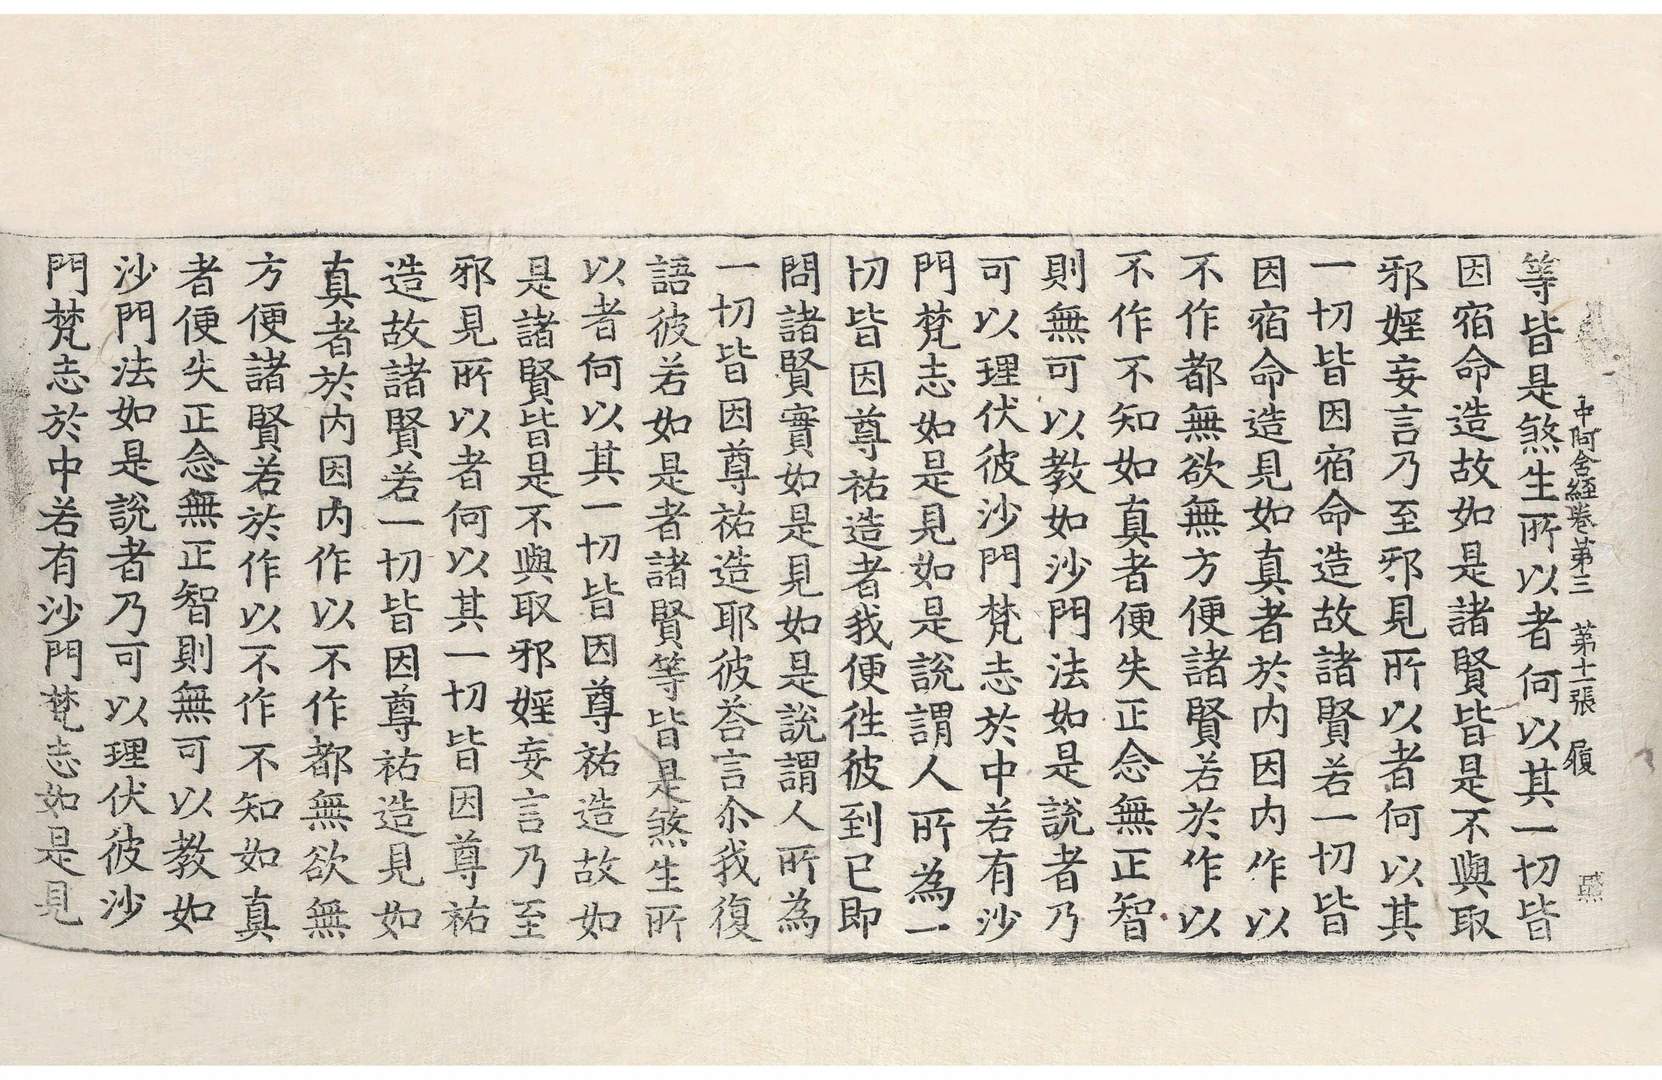 中阿含経卷第三　第十二張　履
等皆是煞生所以者何以其一切皆
因宿命造故如是諸賢皆是不與取
邪婬妄言乃至邪見所以者何以其
一切皆因宿命造故諸賢若一切皆
因宿命造見如真者於内因内作以
不作都無欲無方便諸賢若於作以
不作不知如真者便失正念無正智
則無可以教如沙門法如是說者乃
可以理伏彼沙門梵志於中若有沙
門梵志如是見如是說謂人所為一
切皆因尊祐造者我便往彼到已即
問諸賢實如是見如是說謂人所為
一切皆因尊祐造耶彼荅言尒我復
語彼若如是者諸賢等皆是煞生所
以者何以其一切皆因尊祐造故如
是諸賢皆是不與取邪婬妄言乃至
邪見所以者何以其一切皆因尊祐
造故諸賢若一切皆因尊祐造見如
真者於内因内作以不作都無欲無
方便諸賢若於作以不作不知如真
者便失正念無正智則無可以教如
沙門法如是說者乃可以理伏彼沙
門梵志於中若有沙門梵志如是見